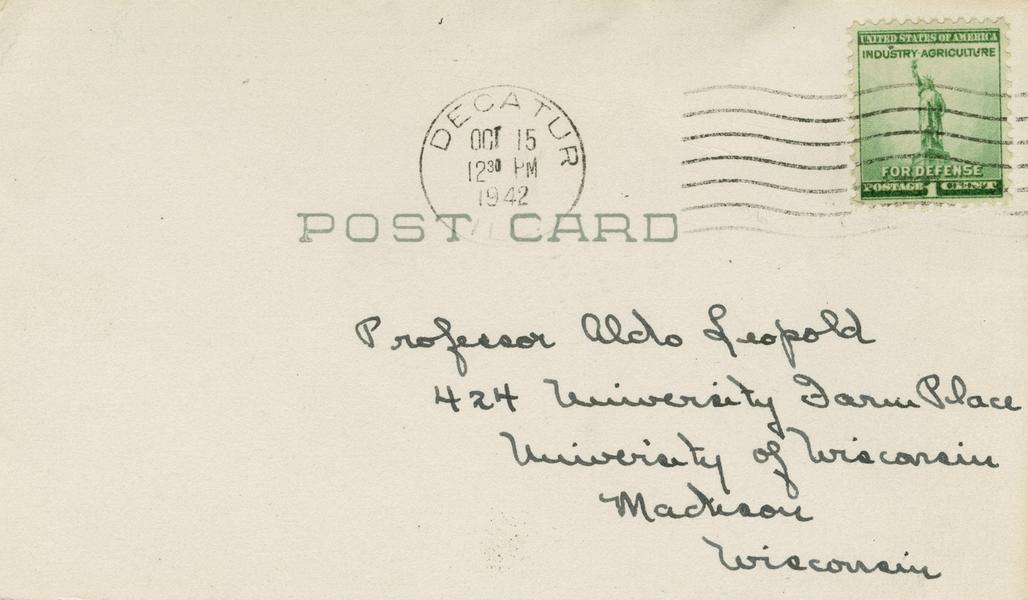 UNITED STATES OF AMERICA
INDUSTRY-AGRICULTURE
FOR DEFENSE
POSTAGE 1 CENT
DECATUR
OCT 15
12 30 PM
1942
POST CARD
Professor Aldo Leopold
424 University Farm Place
University of Wisconsin
Madison
Wisconsin